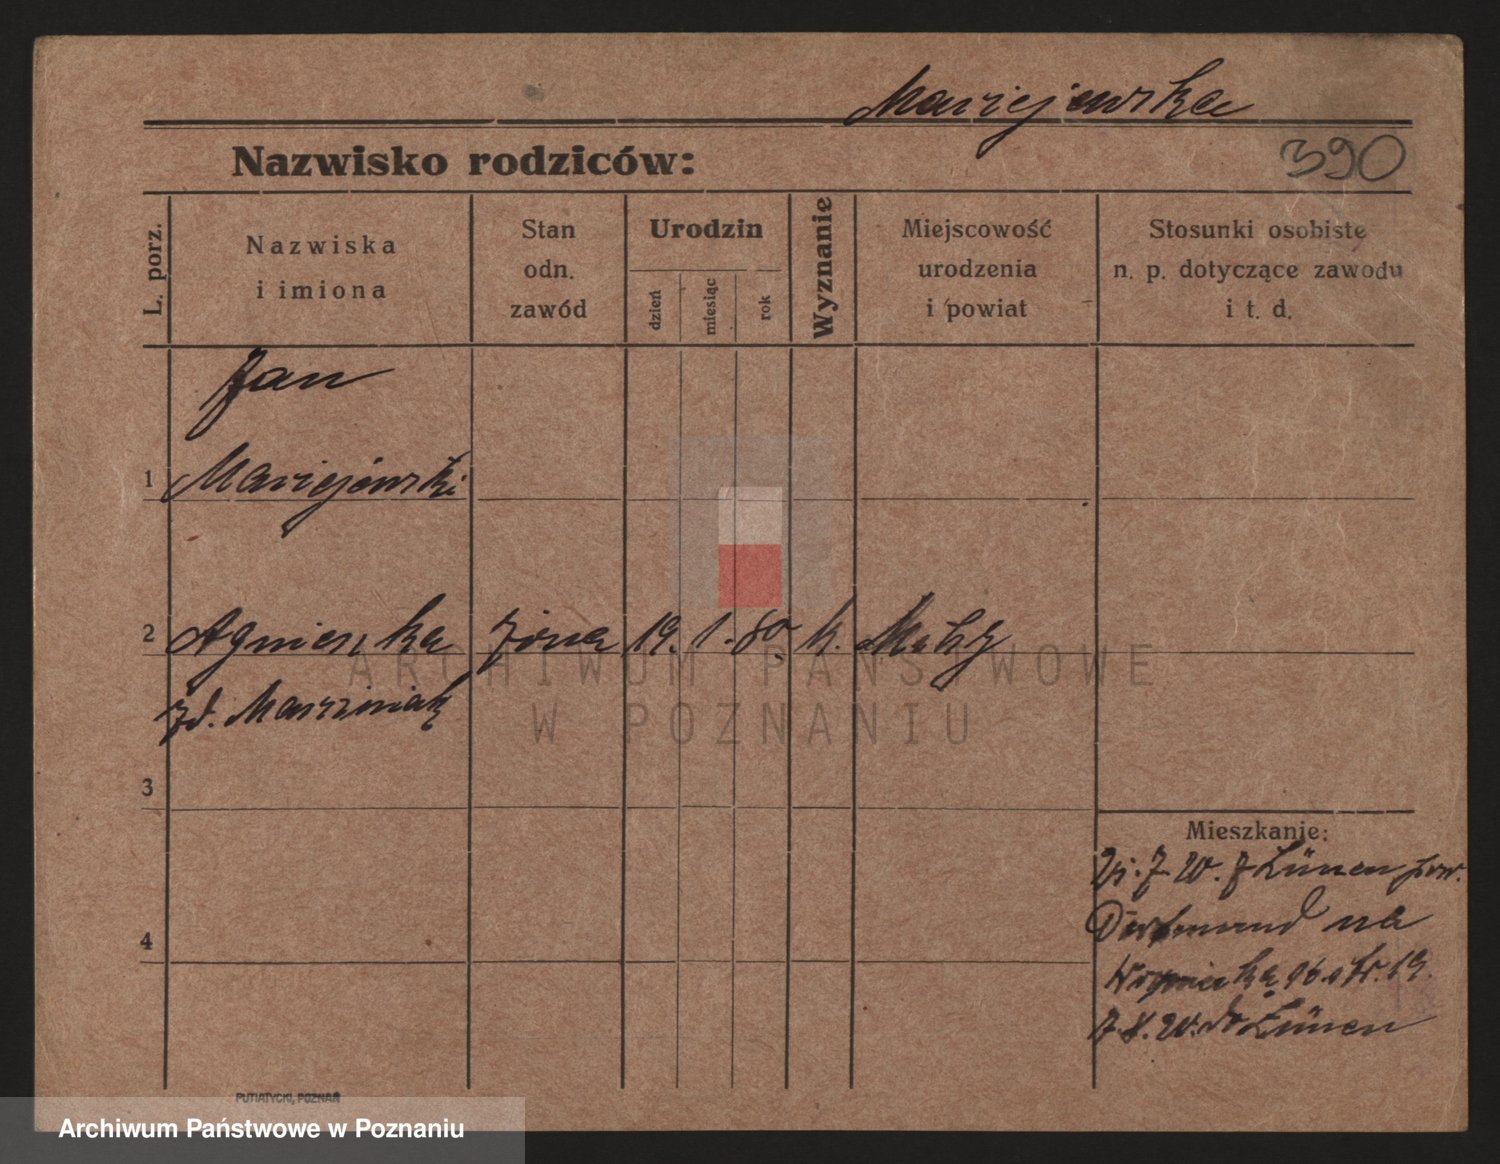 Maciejewska
Nazwisko rodziców:
390
L. porz.
Nazwiska
i imiona
Stan
odn.
zawód
Urodzin
dzień
miesiąc
rok
Wyznanie
Miejscowość
urodzenia
i powiat
Stosunki osobiste
n. p. dotyczące zawodu
i t. d.
Jan
1 Maciejewski
2 Agnieszka żona 19. 1. 80 k.
zd. Marciniak
3
4
Mieszkanie:
Lünen pow.
Dortmund na
19.
7.8. do Lünen
ARCHIWUM PAŃSTWOWE
W POZNANIU
PUTIATYCKI, POZNAŃ
Archiwum Państwowe w Poznaniu